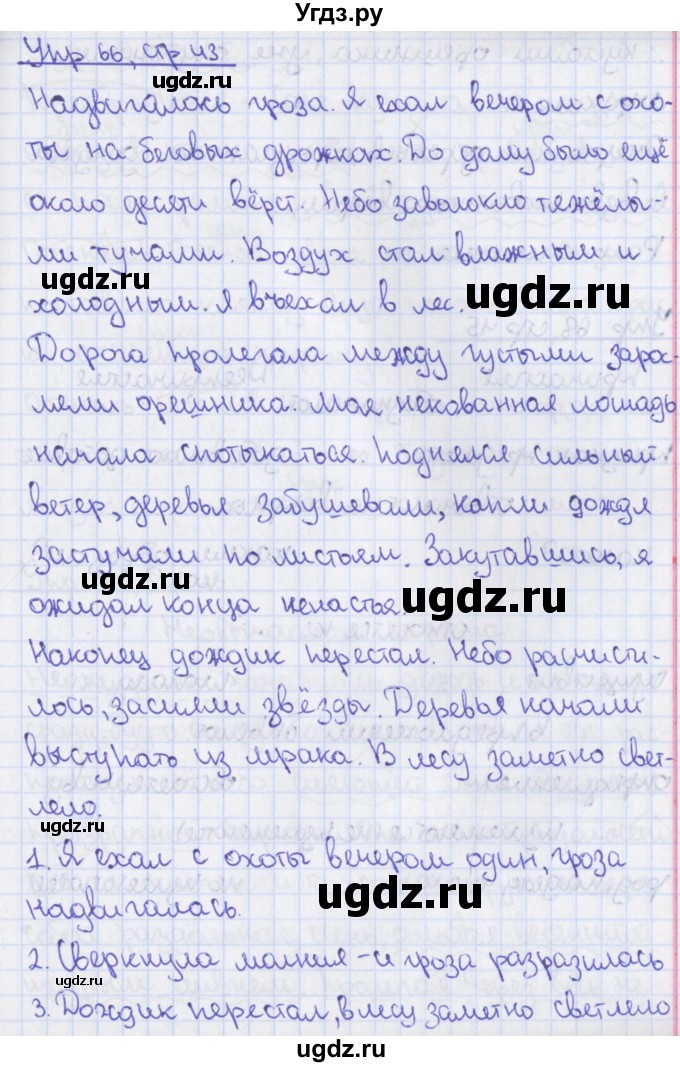 Угдз.ру
Упр 66, стр 43
ugdz.ru
Надвигалась гроза. Я ехал вечером с охо-
ты на беговых дрожках. До дому было ещё
около десяти вёрст. Небо заволокло тяжёлы-
ми тучами. Воздух стал влажным и
ugdz.ru
холодным. Я въехал в лес.
ugdz.ru
Дорога пролегала между густыми зарос-
лями орешника. Моя некованная лошадь
начала спотыкаться. Поднялся сильный
ветер, деревья забушевали, капли дождя
застучали по листьям. Закутавшись, я
ugdz.ru
ugdz.ru
ожидал конца ненастья.
Наконец дождик перестал. Небо расчисти-
лось, засияли звёзды. Деревья начали
выступать из мрака. В лесу заметно свет-
лело.
ugdz.ru
1. Я ехал с охоты вечером один, гроза
ugdz.ru
надвигалась.
2. Сверкнула молния – и гроза разразилась
ugdz.ru
3. Дождик перестал, в лесу заметно светлело
ugdz.ru